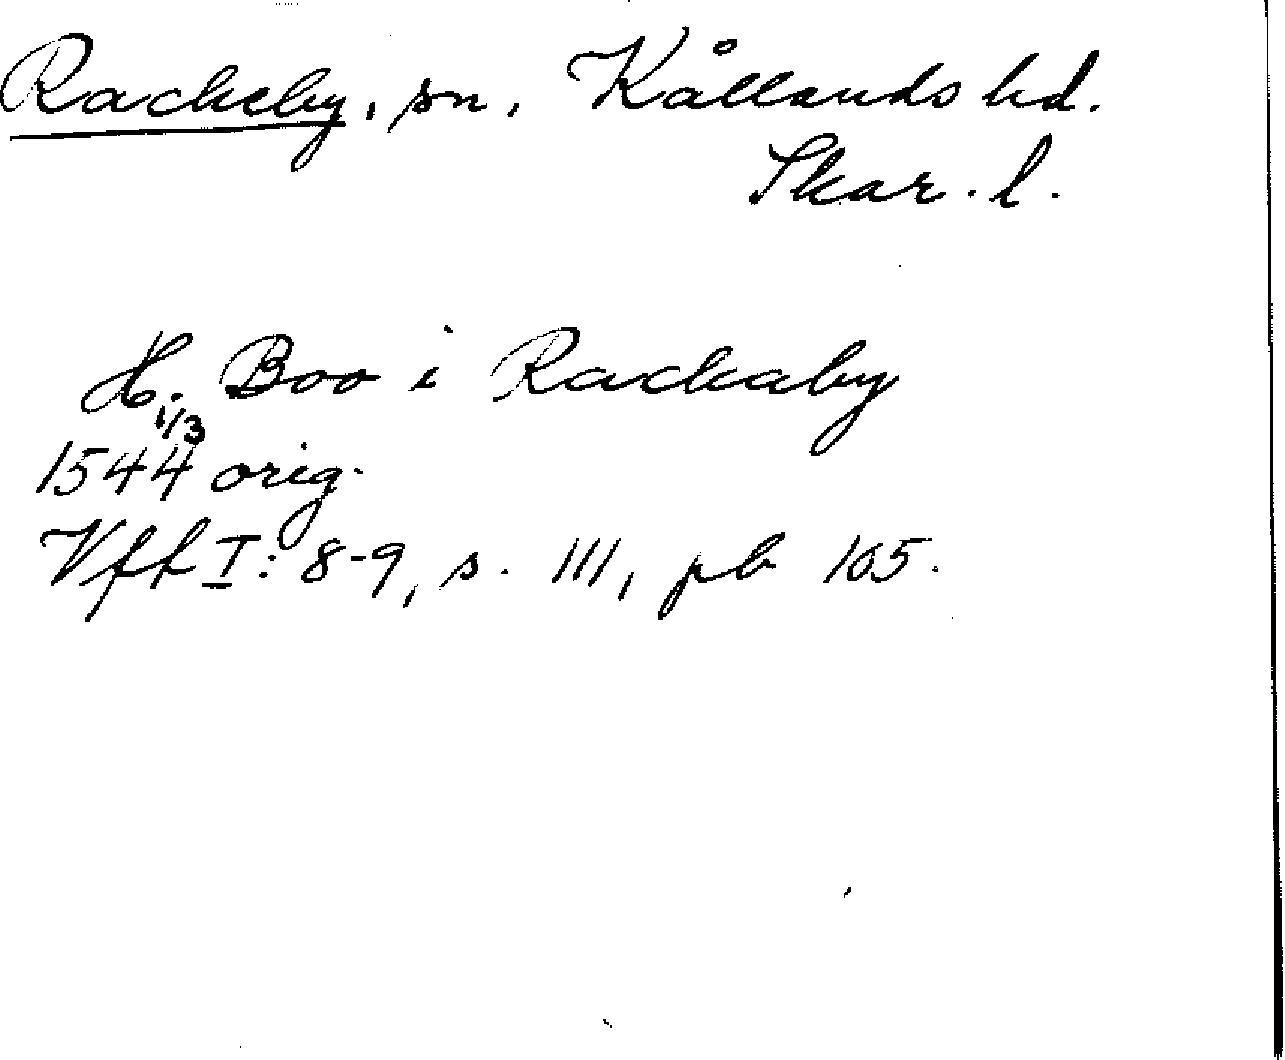 Rackeby, sn, Kållands hd.
Skar. l.
H. Boo i Rackaby
1/3
1544 orig.
Vff I: 8-9, s. 111, pb 105.